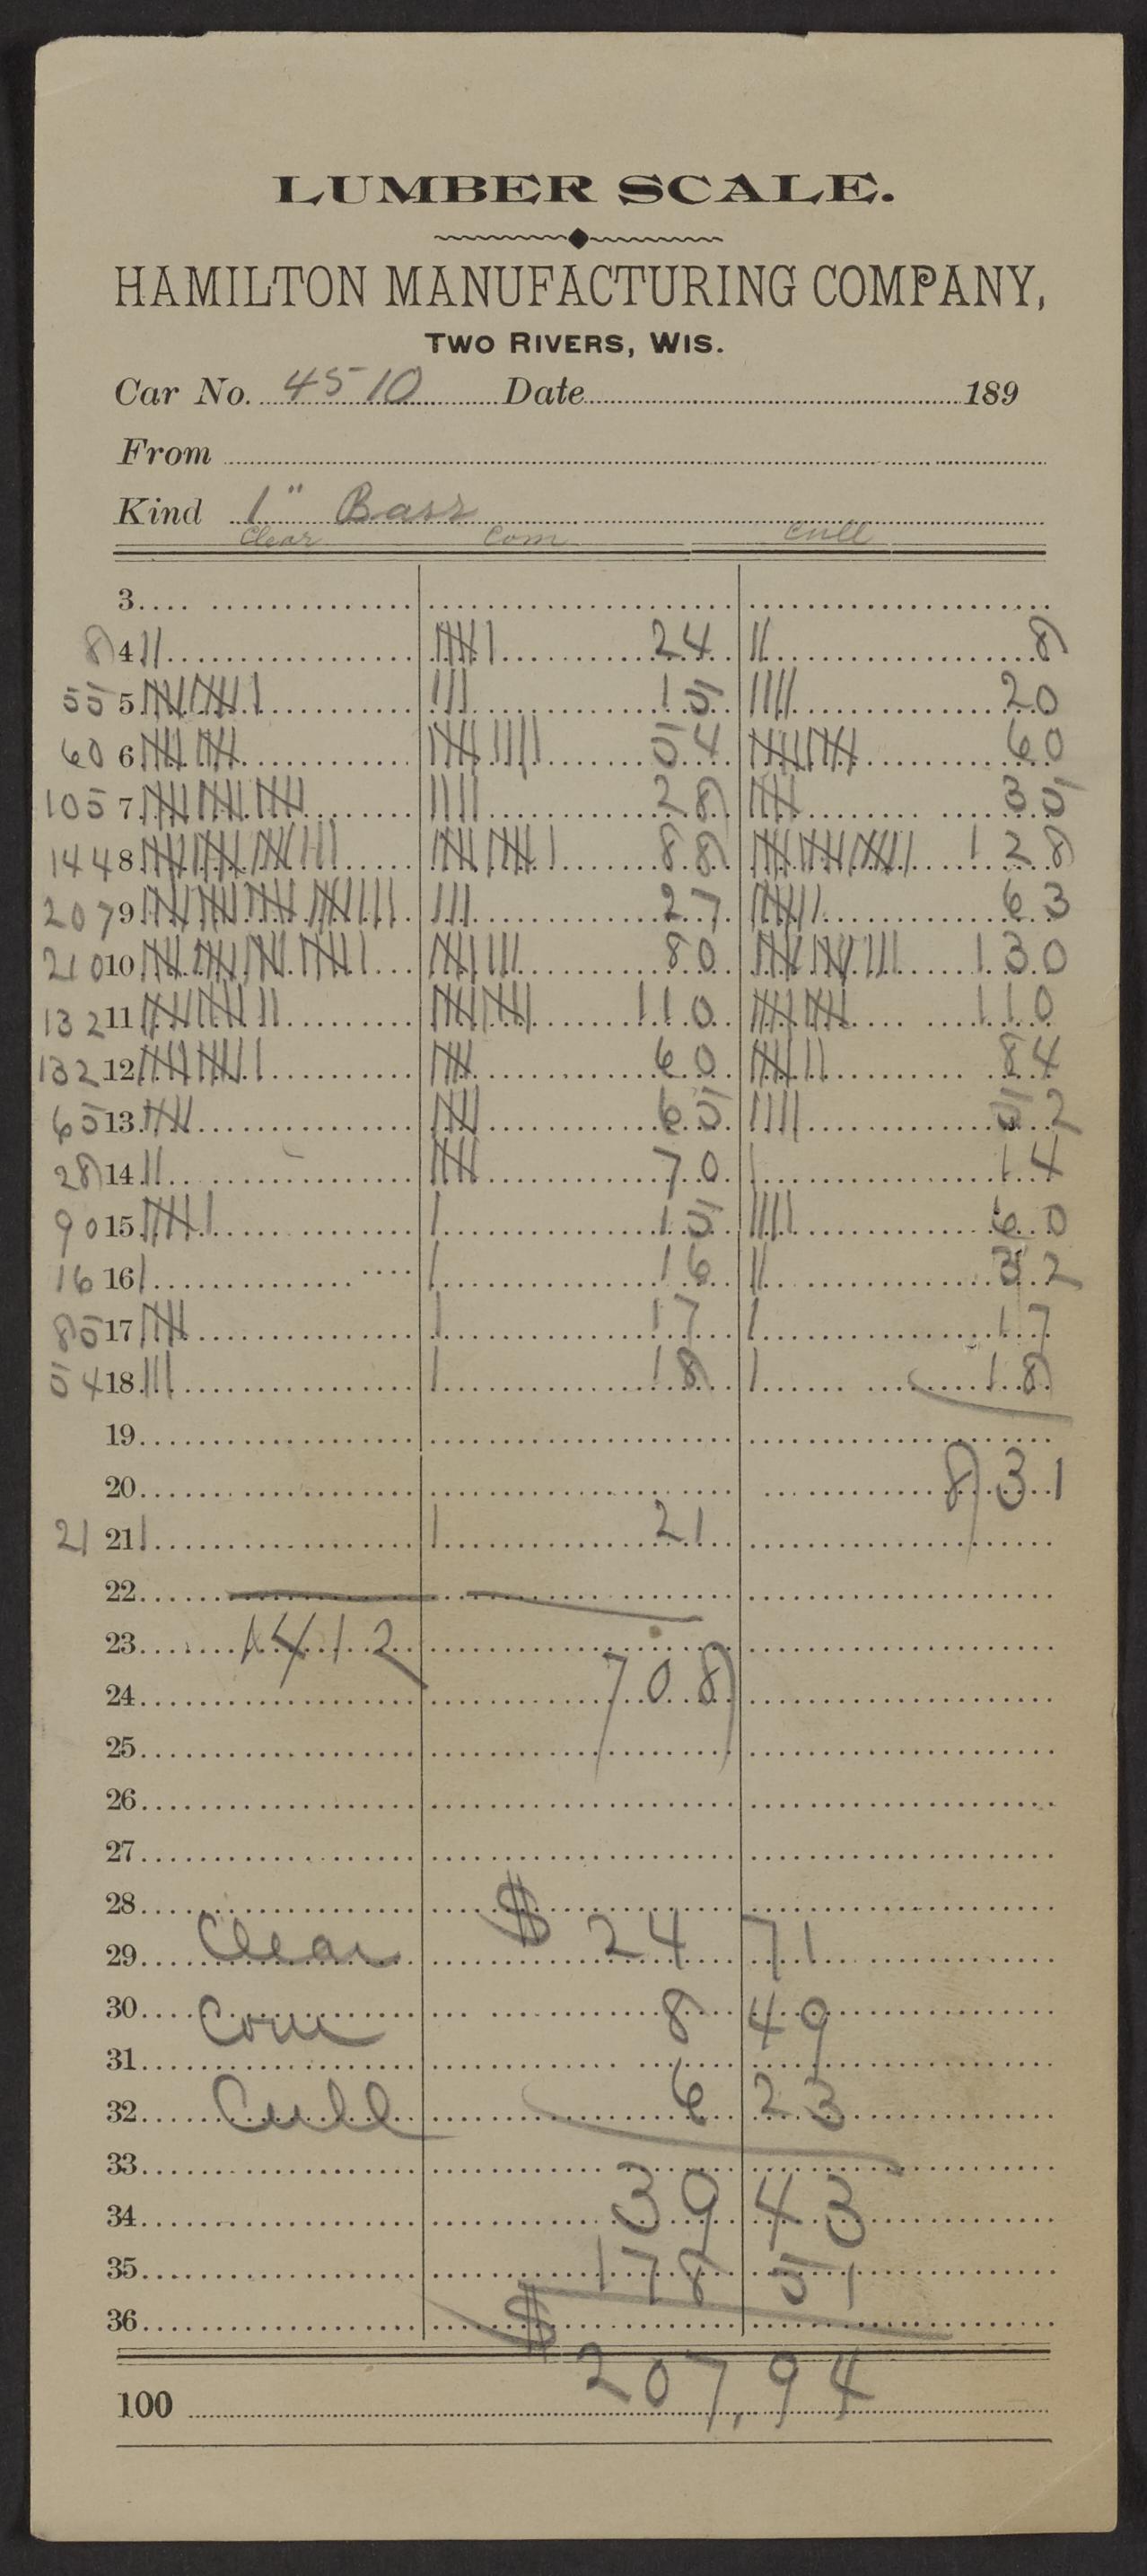 LUMBER SCALE.
HAMILTON MANUFACTURING COMPANY,
TWO RIVERS, WIS.
Car No. 4510 Date 189
From
Kind 1" Bass
Clear Com Cull
3
8 4 || |||| | 24 || 8
55 5 |||| |||| | ||| 15 |||| 20
60 6 |||| |||| |||| |||| 54 |||| |||| 60
105 7 |||| |||| |||| |||| 28 |||| 35
144 8 |||| |||| |||| ||| |||| |||| | 88 |||| |||| |||| | 128
207 9 |||| |||| |||| |||| ||| ||| 27 |||| || 63
210 10 |||| |||| |||| |||| | |||| ||| 80 |||| |||| ||| 130
132 11 |||| |||| || |||| |||| 110 |||| |||| 110
132 12 |||| |||| | |||| 60 |||| || 84
65 13 |||| |||| 65 |||| 52
28 14 || |||| 70 | 14
90 15 |||| | | 15 |||| 60
16 16 | | 16 || 32
85 17 |||| | 17 | 17
54 18 ||| | 18 | 18
19
20 831
21 21 | | 21
22
23 1412
24 708
25
26
27
28
29 Clear $ 24 71
30 Com 8 49
31
32 Cull 6 23
33
34 39 43
35 178 51
36 $
207,94
100